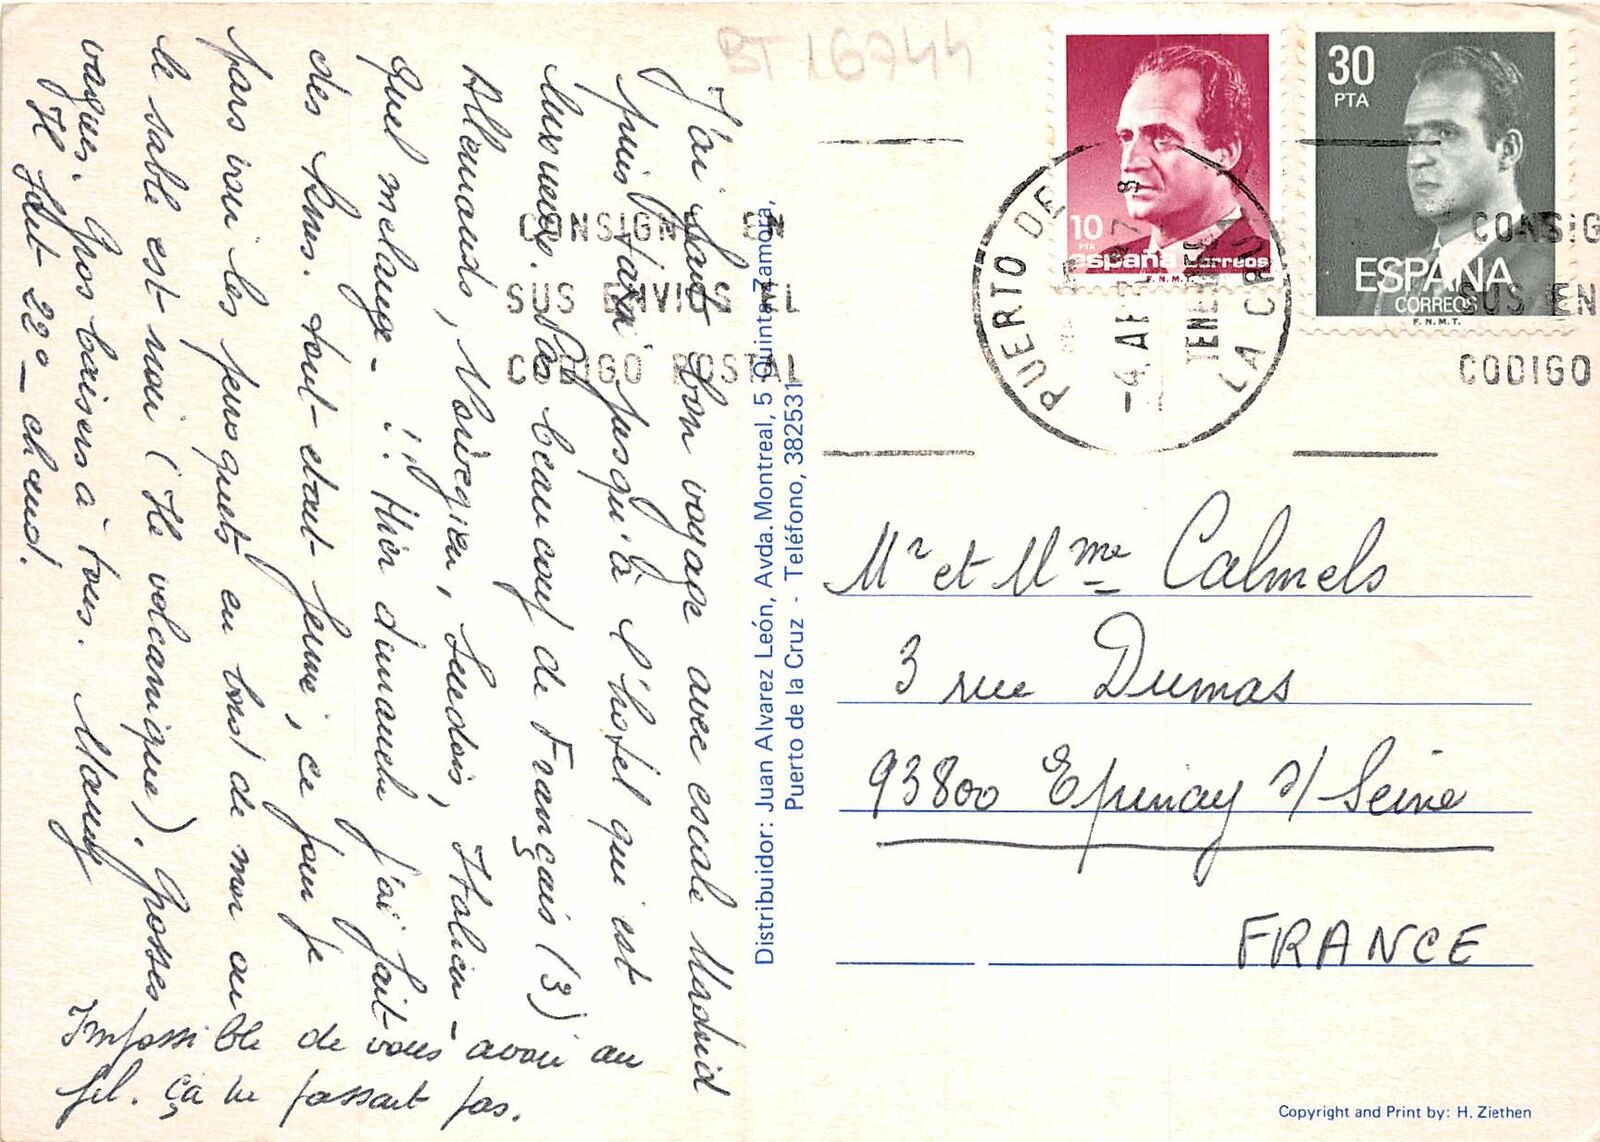 BT 16744
J'ai fait bon voyage avec escale Madrid
puis taxi jusqu'à l'hotel qui est
luxueux. Pas beaucoup de Français (3)
Allemands, Norvégien, Suedois, Italien -
quel melange - !! Hier dimanche j'ai fait
des kms. tout etant fermé, ce jour je
pars voir les perroquets en bord de mer ou
le sable est noir (Ile volcanique). Grosses
vagues. Gros baisers à tous. Mamy
Il fait 22° - chaud.
Impossible de vous avoir au
fil. ça ne passait pas.
Distribuidor: Juan Alvarez León, Avda. Montreal, 5 Quinta Zamora,
Puerto de la Cruz - Teléfono, 382531
CONSIGNE EN
SUS ENVIOS EL
CODIGO POSTAL
10
PTA
españa correos
F.N.M.T.
30
PTA
ESPAÑA
CORREOS
F.N.M.T.
PUERTO DE LA CRUZ
-4. ABR. 87
TENERIFE
CONSIG
SUS EN
CODIGO
Mr et Mme Calmels
3 rue Dumas
93800 Epinay s/ Seine
FRANCE
Copyright and Print by: H. Ziethen